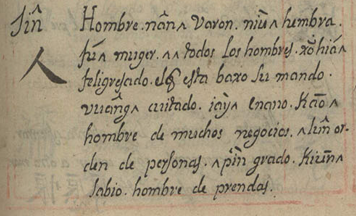 Jîn̂ Hombre. nân^ Varon. niù^ hembra.
人 fú^ muger. ^^ todos los hombres. xô hián^
feligresado. los esta baxo su mando.
vuâng^ cuitado. iày^ enano. Kāo^
hombre de muchos negocios. ^ lûn or-
den de personas. ^ pìn grado. Kiûn^
sabio. hombre de prendas.